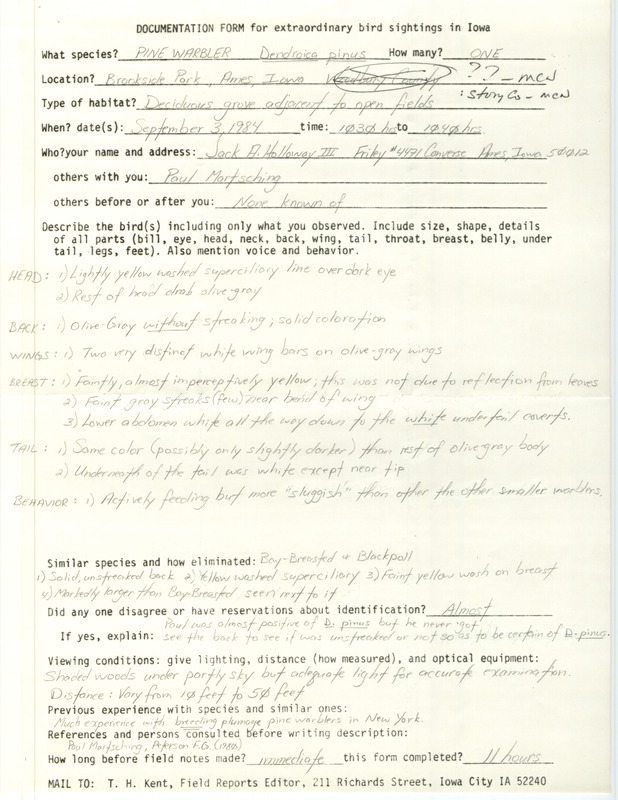 DOCUMENTATION FORM for extraordinary bird sightings in Iowa
What species? PINE WARBLER Dendroica pinus How many? ONE
Location? Brookside Park, Ames, Iowa Woodbury County ?? - MCN
: Story Co - MCN
Type of habitat? Deciduous grove adjacent to open fields
When? date(s): September 3, 1984 time: 1030 hrs to 1040 hrs.
Who? your name and address: Jack A. Holloway III Friley #4471 Converse Ames, Iowa 50012
others with you: Paul Martsching
others before or after you: None known of
Describe the bird(s) including only what you observed. Include size, shape, details
of all parts (bill, eye, head, neck, back, wing, tail, throat, breast, belly, under
tail, legs, feet). Also mention voice and behavior.
HEAD: 1) Lightly yellow washed superciliary line over dark eye
2) Rest of head drab olive-gray
BACK: 1) Olive-Gray without streaking; solid coloration
WINGS: 1) Two very distinct white wing bars on olive-gray wings
BREAST: 1) Faintly, almost imperceptively yellow; this was not due to reflection from leaves
2) Faint gray streaks (few) near bend of wing
3) Lower abdomen white all the way down to the white undertail coverts.
TAIL: 1) Same color (possibly only slightly darker) than rest of olive-gray body
2) Underneath of the tail was white except near tip
BEHAVIOR: 1) Actively feeding but more "sluggish" than other the other smaller warblers.
Similar species and how eliminated: Bay-Breasted & Blackpoll
1) Solid, unstreaked back 2) Yellow washed superciliary 3) Faint yellow wash on breast
4) Markedly larger than Bay-Breasted seen next to it
Did any one disagree or have reservations about identification? Almost
Paul was almost positive of D. pinus but he never got
If yes, explain: see the back to see if was unstreaked or not so as to be certain of D. pinus.
Viewing conditions: give lighting, distance (how measured), and optical equipment:
Shaded woods under partly sky but adequate light for accurate examination.
Distance: Vary from 10 feet to 50 feet
Previous experience with species and similar ones:
Much experience with breeding plumage pine warblers in New York.
References and persons consulted before writing description:
Paul Martsching, Peterson F.G. (1980)
How long before field notes made? immediate this form completed? 11 hours
MAIL TO: T. H. Kent, Field Reports Editor, 211 Richards Street, Iowa City IA 52240